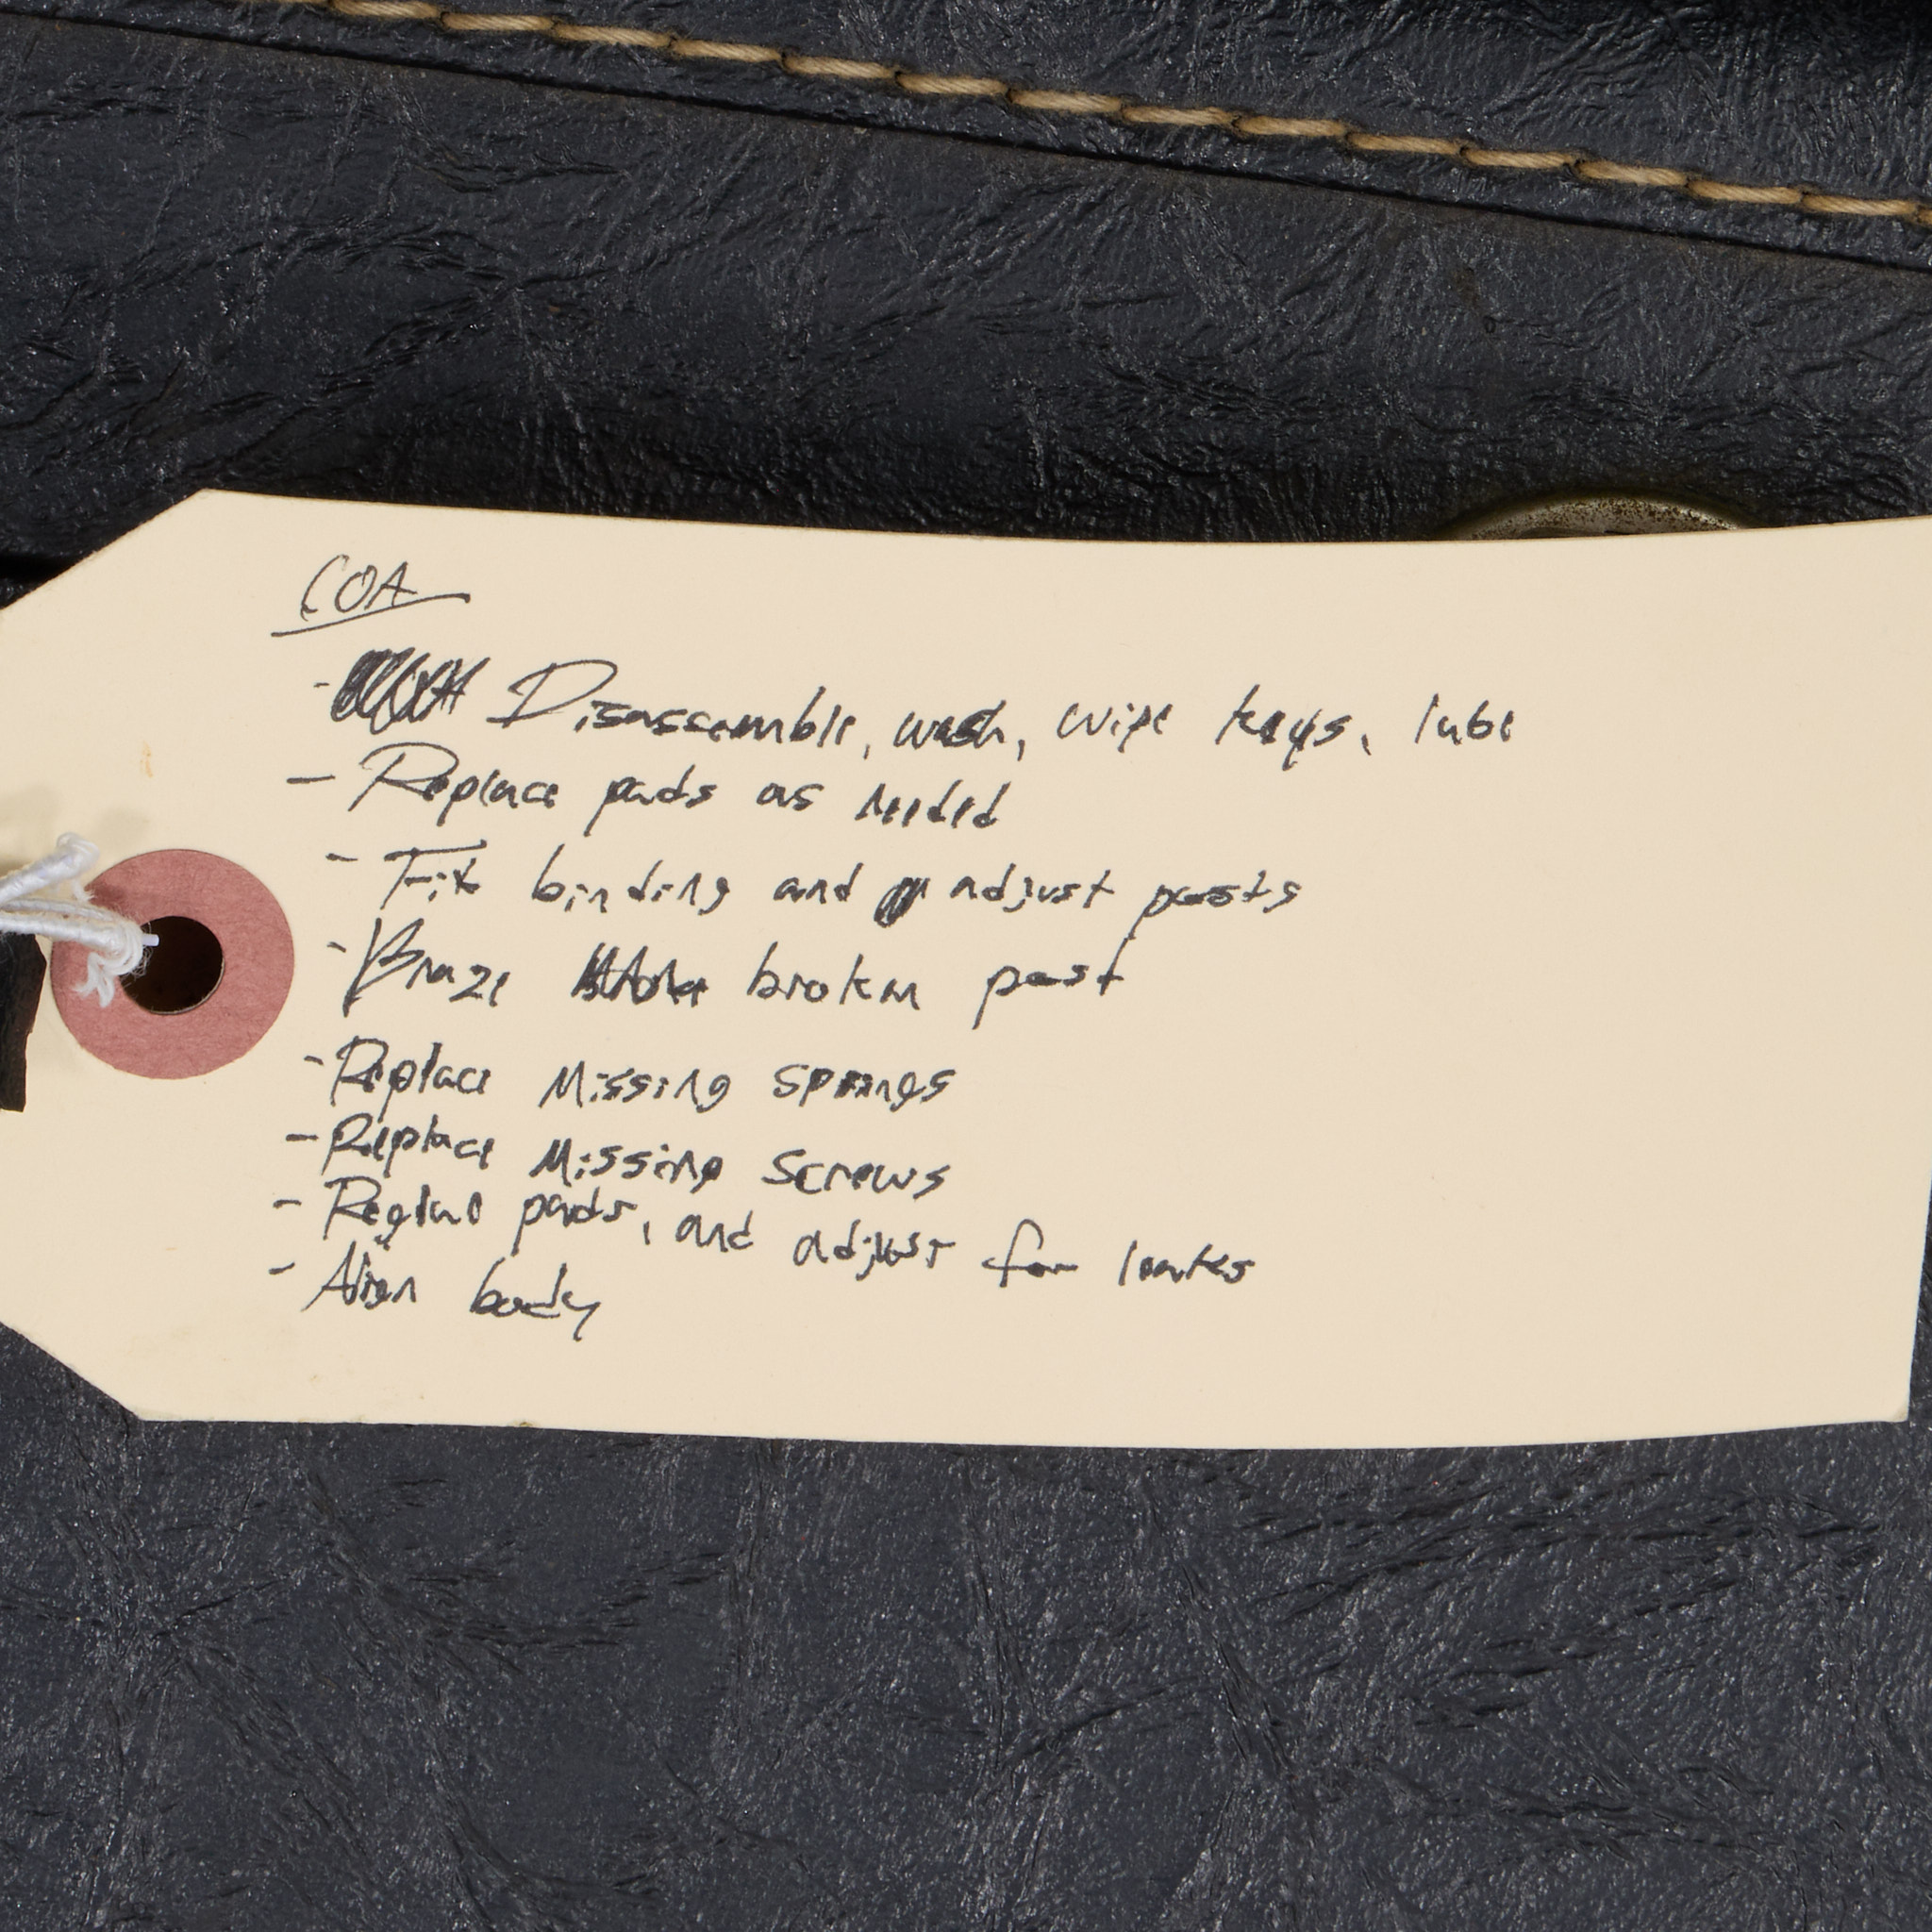 COA
- Disassemble, wash, wipe keys, lube
- Replace pads as needed
- Fix binding and adjust posts
- Braze broken post
- Replace Missing springs
- Replace Missing Screws
- Reglue pads, and adjust for leaks
- Align body